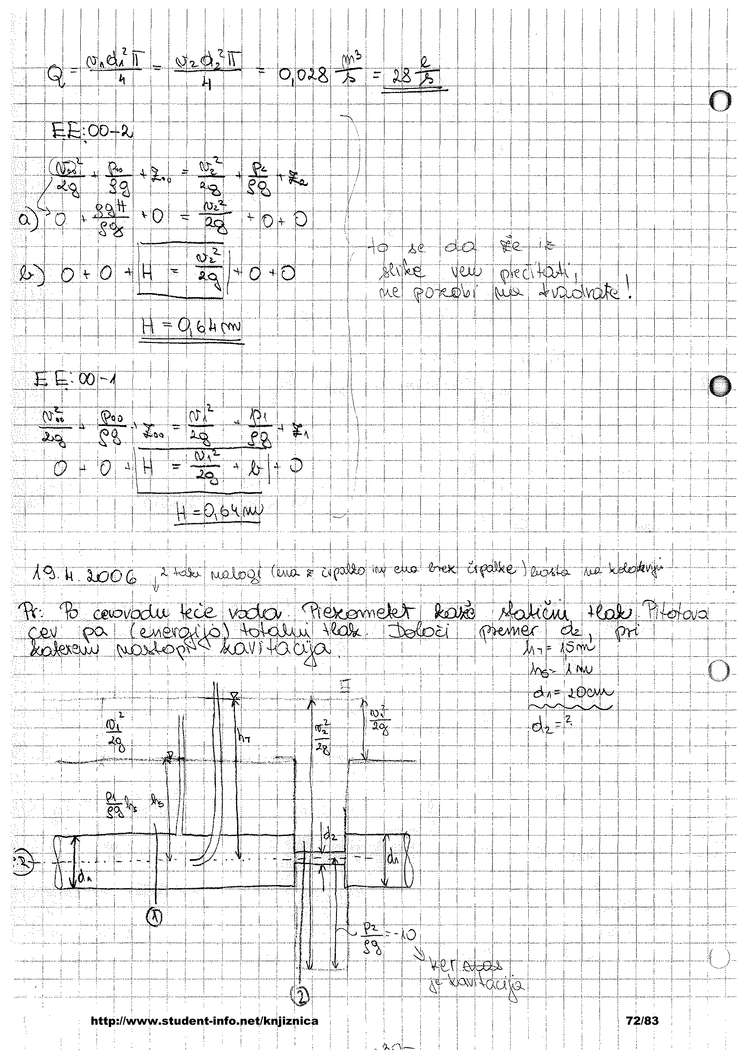 Q = v₁d₁²π/4 = v₂d₂²π/4 = 0,028 m³/s = 28 l/s
EE: 00-2
v₀₀²/2g + p₀₀/ρg + z₀₀ = v₂²/2g + p₂/ρg + z₂
a) 0 + ρgH/ρg + 0 = v₂²/2g + 0 + 0
b) 0 + 0 + H = v₂²/2g + 0 + 0
to se da že iz
slike ven prečitati,
ne pozabi na kvadrate!
H = 0,64 m
EE: 00-1
v₀₀²/2g + p₀₀/ρg + z₀₀ = v₁²/2g + p₁/ρg + z₁
0 + 0 + H = v₁²/2g + h + 0
H = 0,64 m
19.4.2006 2 taki nalogi (ena z črpalko in ena brez črpalke) bosta na kolokviju
Pr: Po cevovodu teče voda. Piezometer kaže statični tlak Pitotova
cev pa (energijo) totalni tlak. Določi premer d₂, pri
katerem nastopi kavitacija.
h_T = 15m
h_s = 1m
d₁ = 20cm
d₂ = ?
v₁²/2g
h_T
v₂²/2g
v₁²/2g
p₁/ρg
h_s
h_s
d₂
d₁
d₁
1
p₂/ρg = -10
ker
je kavitacija
2
http://www.student-info.net/knjiznica 72/83